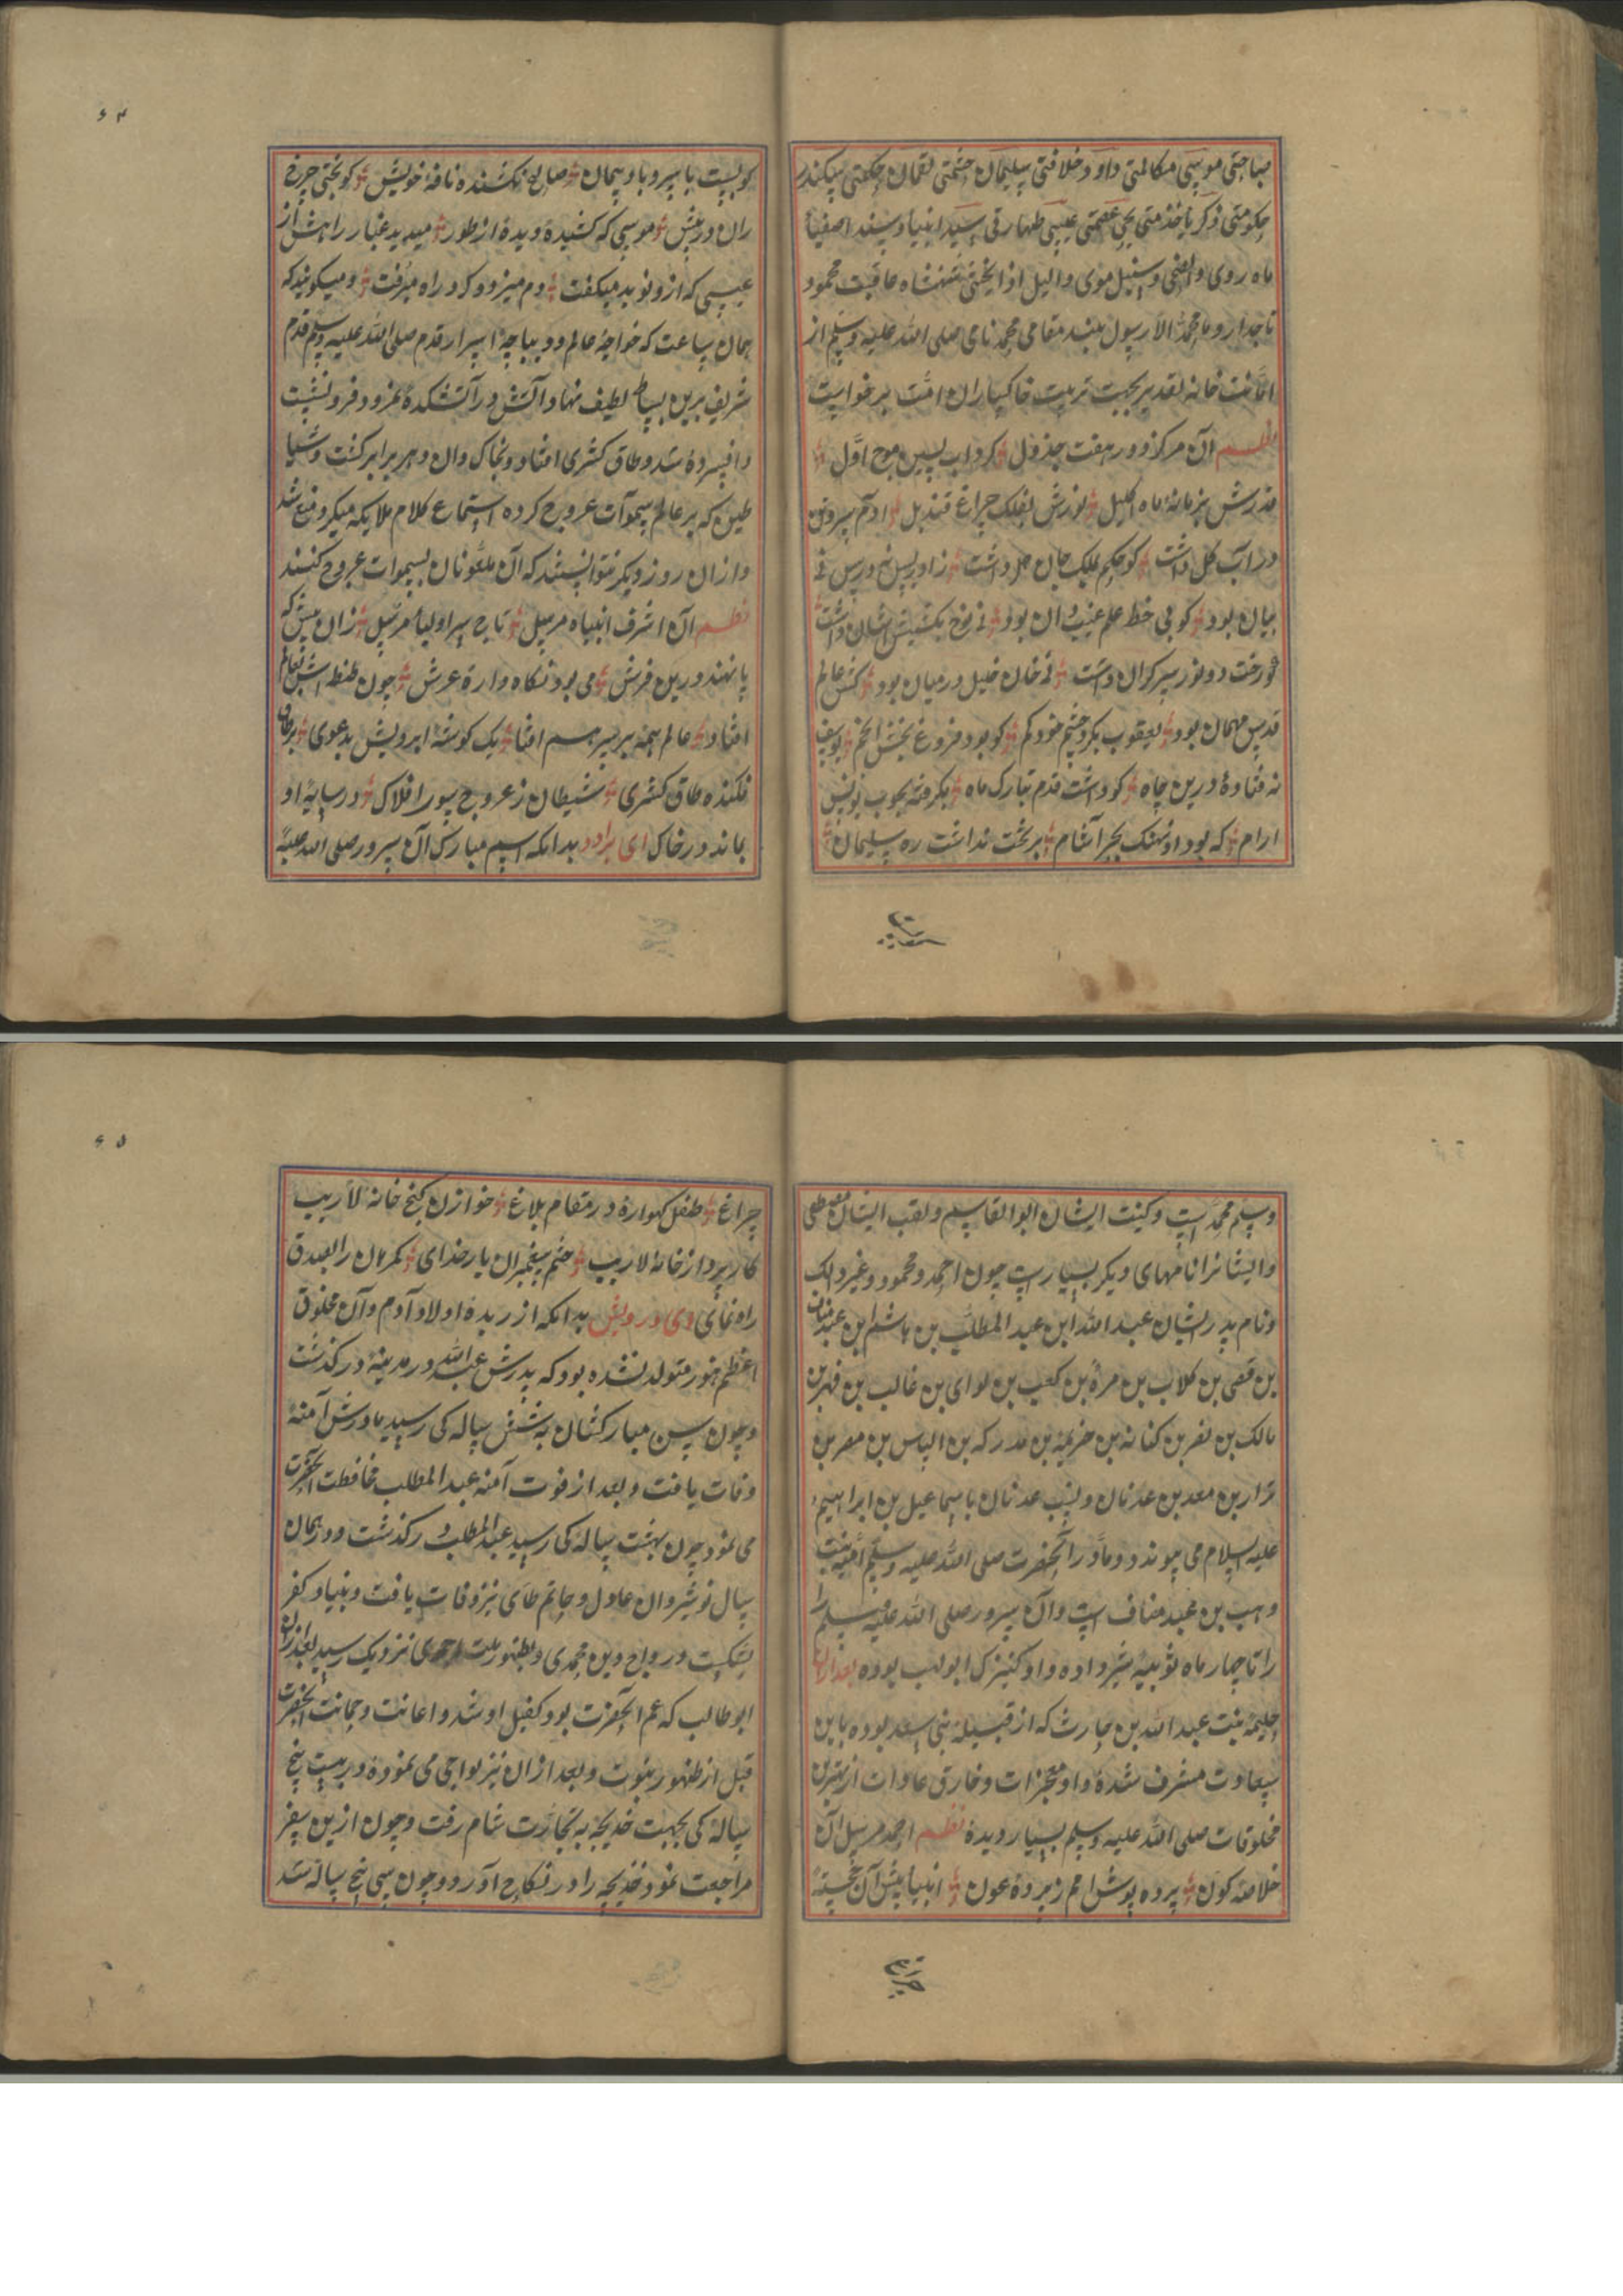 صباحتی موسی مکالمتی داود خلافتی سلیمان حشمتی لقمان حکمتی سکندر
حکومتی زکریا خدمتی یحیی عصمتی عیسی طهارتی سید انبیا و سند اصفیا
ماه روی والضحی و سنبل موی والیل اذا یغشی شهنشاه عاقبت محمود
تاجدار وما محمد الا رسول بلند مقامی محمد نامی صلی الله علیه وسلم از
خانه تقدیر بجهت تربیت خاکساران امت برخواست
نظم آن مرکز دور هفت جدول کرداب پسین موج اول
قدرش بزمانهٔ ماه اکلیل نورش بفلک چراغ قندیل آدم
در آب کل داشت کو حکم بملک جان و دل داشت
بیان بود کو بی خط علم غیب دان بود نی نوح
نی خان خلیل درمیان بود
قدس مهمان بود یعقوب نکرد چشم خود کم کو بود فروغ بخش انجم یوسف
نه فتاده درین چاه کو داشت قدم بتارک ماه نکرفته بحوت یونس
آرام که بود او نهنک بحر آشام بر تخت نداشت ره سلیمان
کو بست با سیر و با و پیمان صالح نکشنده ناقهٔ خویش کو بختی چرخ
ران در پیش موسی که کشیده دیده از طور میدید غبار راهش از
عیسی که ازو نوید میکفت دم میزد و کرد راه میرفت و میکویند که
همان ساعت که خواجهٔ عالم و دیباجهٔ اسرار قدم صلی الله علیه وسلم قدم
شریف برین بساط لطیف نهاد آتش در آتشکدهٔ نمرود فرو نشست
و افسرده شد و طاق کسری افتاد و بخاک وان دهر برابر کشت و شیا
طین که بر عالم سموات عروج کرده استماع کلام ملایکه میکرد منع شد
و ازان روز دیکر نتوانستند که آن ملعونان بسموات عروج کنند
نظم آن اشرف انبیاه مرسل تاج سر اولیا مرسل زان پیش که
پا نهد درین فرش می بود نکاه وارهٔ عرش چون طنطنه اش بعالم
افتاد عالم همه بر سر هم افتاد یک کوشهٔ ابرویش بدعوی بر خاک
فکنده طاق کسری شیطان ز عروج سور افلاک در سایهٔ او
بماند در خاک ای برادر بدانکه اسم مبارک آن سرور صلی الله علیه
سم
وسلم محمد است و کنیت ایشان ابو القاسم و لقب ایشان مصطفی
و ایشانرا نامهای دیکر بسیارست چون احمد و محمود و غیر ذالک
و نام پدر ایشان عبد الله ابن عبد المطلب بن هاشم بن عبد مناف
بن قصی بن کلاب بن مرة بن کعب بن لوای بن غالب بن فهر بن
مالک بن نضر بن کنانه بن خزیمه بن مدرکه بن الیاس بن مضر بن
نزار بن معد بن عدنان و نسب عدنان با سماعیل بن ابراهیم
علیه السلام می پیوندد و مادر آنحضرت صلی الله علیه وسلم آمنه بنت
وهب بن عبد مناف است و آن سرور صلی الله علیه وسلم را
را تا چهار ماه ثوبیه شیر داده و او کنیزک ابولهب بوده بعد ازان
حلیمه بنت عبد الله بن حارث که از قبیله بنی سعد بوده باین
سعادت مشرف شده و او معجزات و خارق عادات از بهترین
مخلوقات صلی الله علیه وسلم بسیار دیده نظم احمد مرسل آن
خلاصه کون پرده پوش امم زیردهٔ عون انبیا پیش آن خجسته
چراغ
چراغ طفل کهواره در مقام بلاغ خوازن کنج خانه لاریب
کار پرداز خانه لاریب ختم پیغمبران یار خدای کمرهان را بصدق
راه نمای وی درویش بدانکه از ربدهٔ اولاد آدم و آن مخلوق
اعظم هنوز متولد نشده بود که پدرش عبد الله در مدینه در کذشت
و چون سن مبارکشان به شش ساله کی رسید مادرش آمنه
وفات یافت و بعد از فوت آمنه عبد المطلب محافظت آنحضرت
می نمود چون بهشت ساله کی رسید عبد المطلب در کذشت و در همان
سال نوشیروان عادل و حاتم طای نیز وفات یافت و بنیاد کفر
شکست و رواج دین محمدی و بظهور ملت احمدی نزدیک رسید بعد ازان
ابوطالب که عم آنحضرت بود کفیل او شد و اعانت و حمایت آنحضرت
قبل از ظهور نبوت و بعد ازان نیز بواجبی می نموده و ربیست پنج
ساله کی بجهت خدیجه به تجارت شام رفت و چون ازین سفر
مراجعت نمود خدیجه را در نکاح آورد و چون سی پنج ساله شد